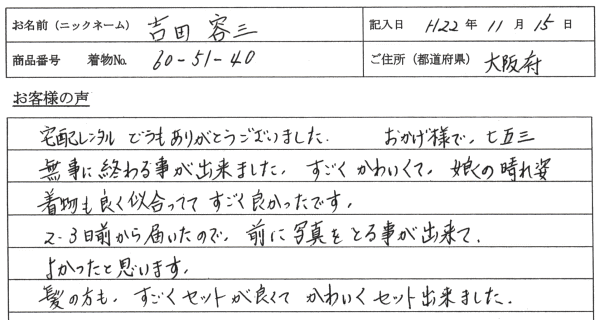 お名前（ニックネーム） 吉田 容三 記入日 H22 年 11 月 15 日
商品番号 着物No. 60-51-40 ご住所（都道府県） 大阪府
お客様の声
宅配レンタル どうもありがとうございました. おかげ様で、七五三
無事に終わる事が出来ました。すごくかわいくて、娘の晴れ姿
着物も良く似合ってて すごく良かったです。
2-3日前から届いたので、前に写真をとる事が出来て.
よかったと思います。
髪の方も、すごくセットが良くて かわいくセット出来ました.